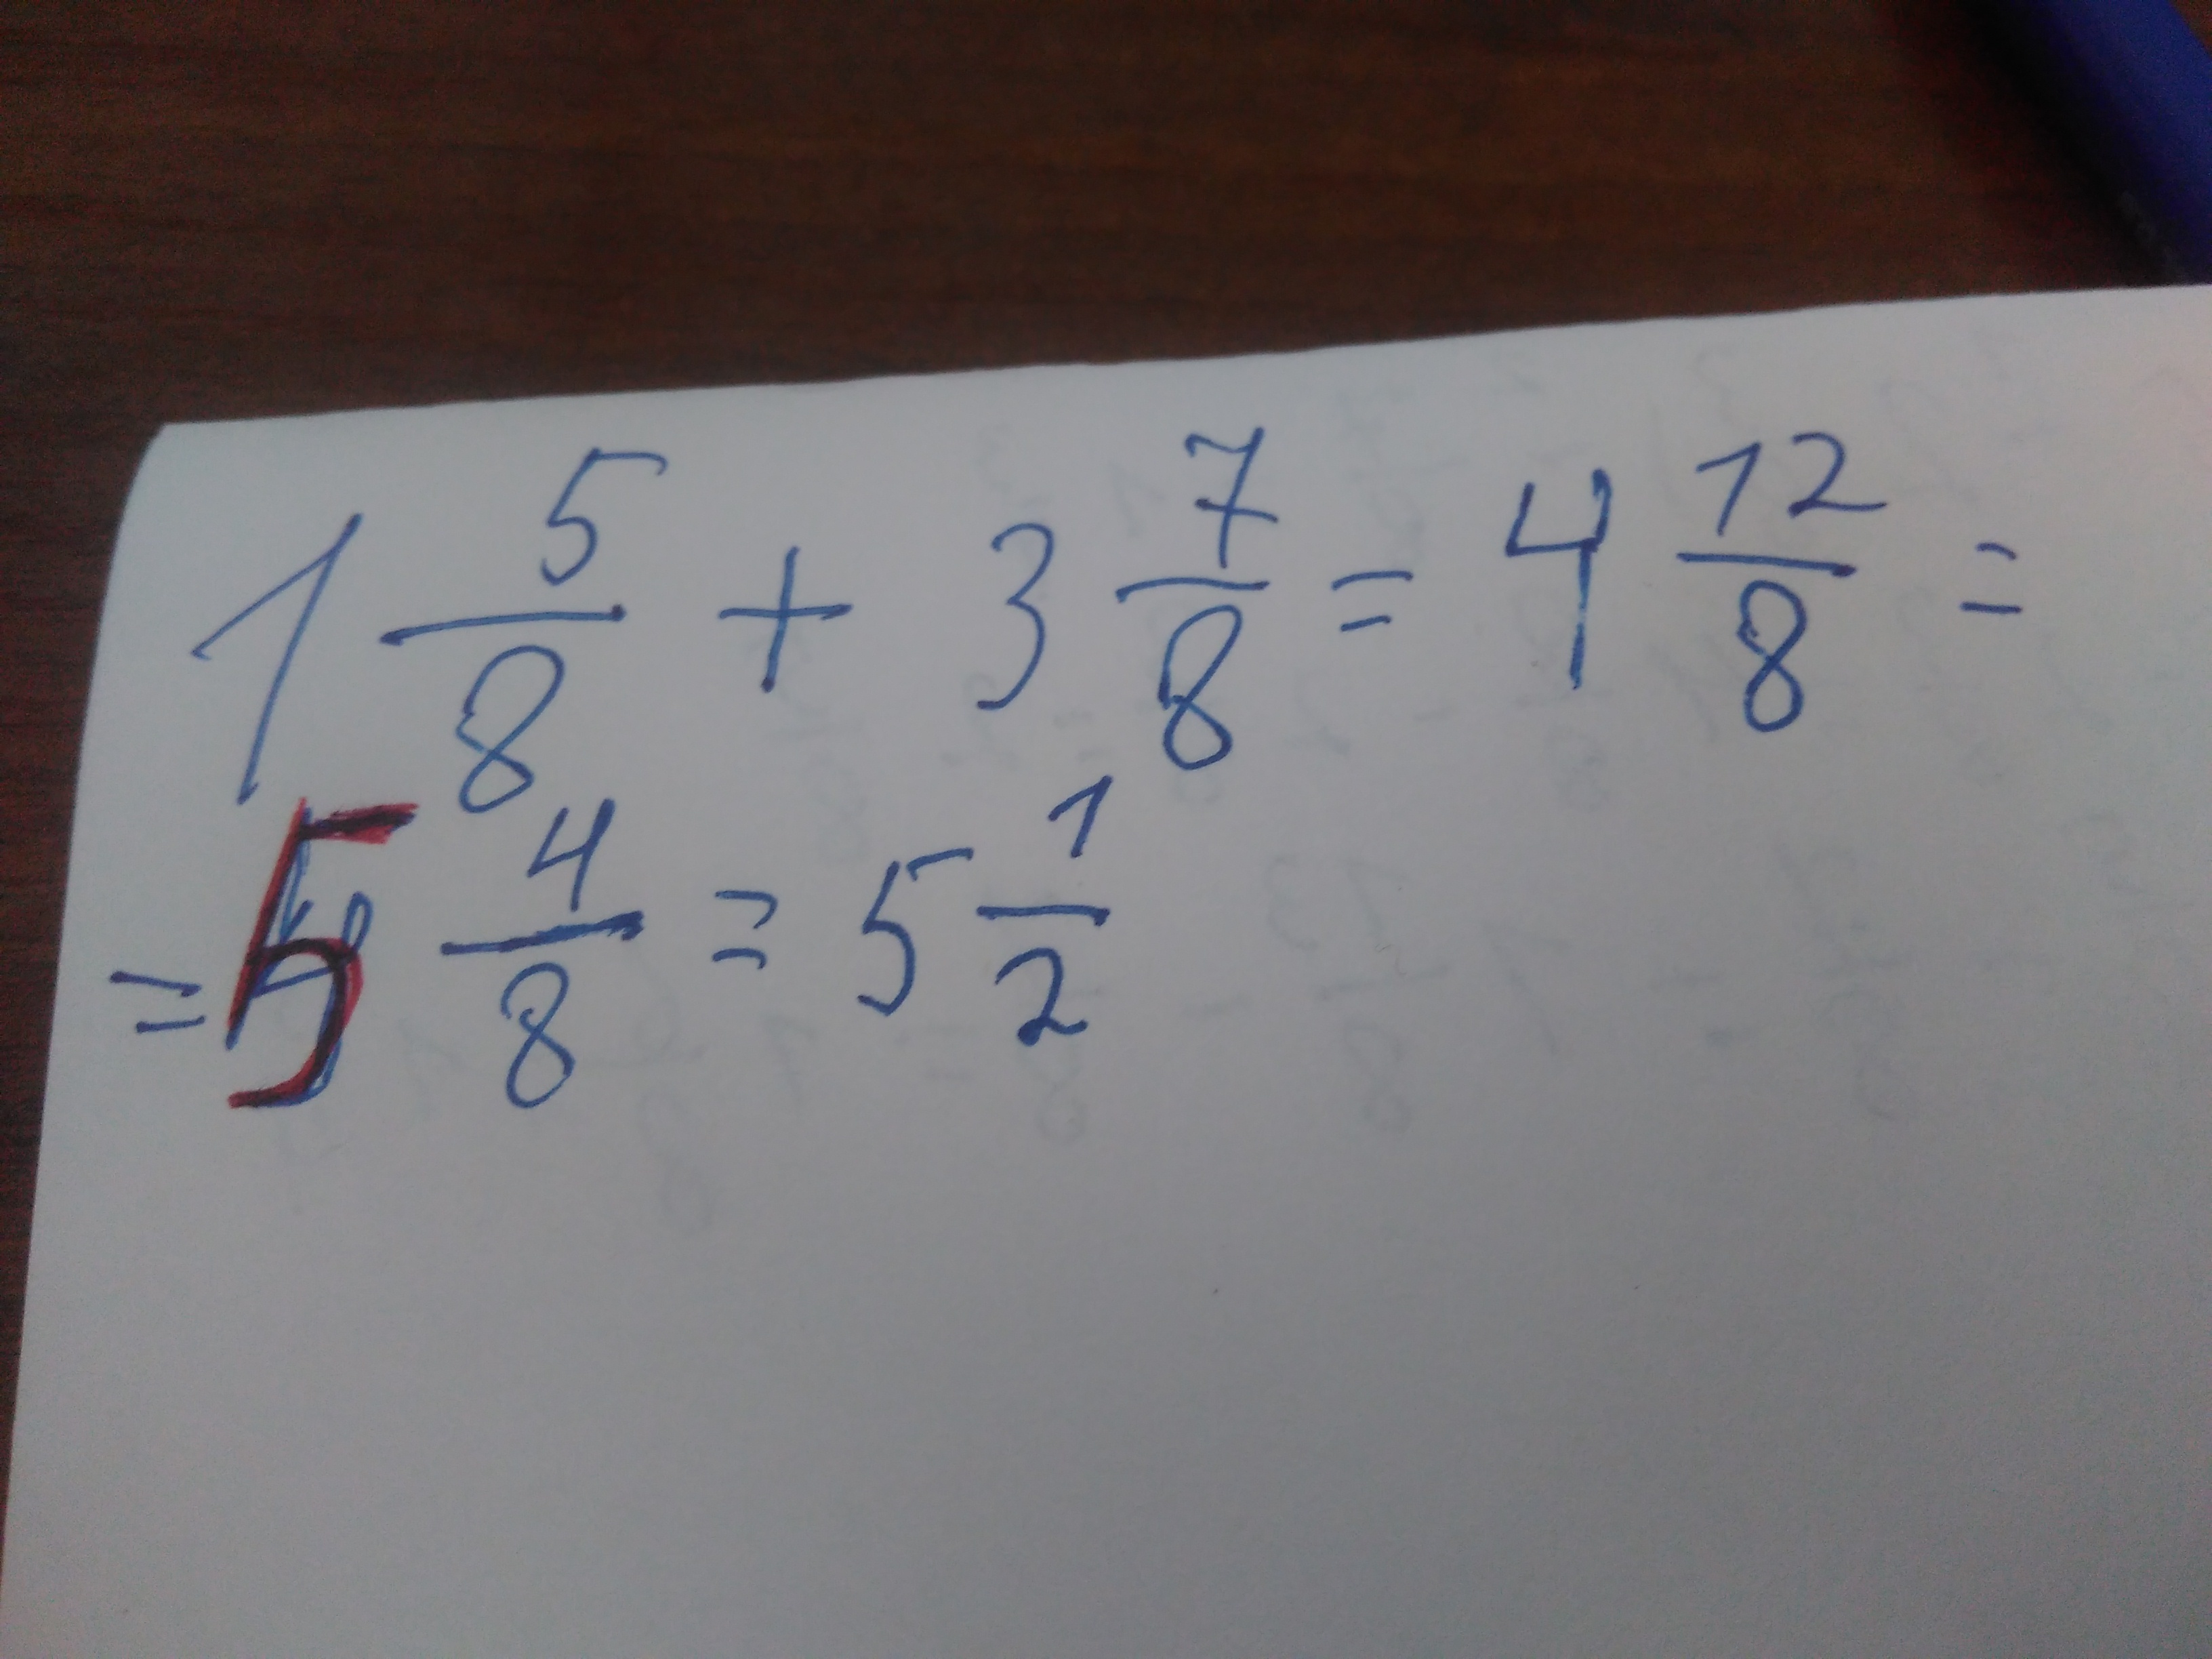 1 5/8 + 3 7/8 = 4 12/8 =
= 5 4/8 = 5 1/2